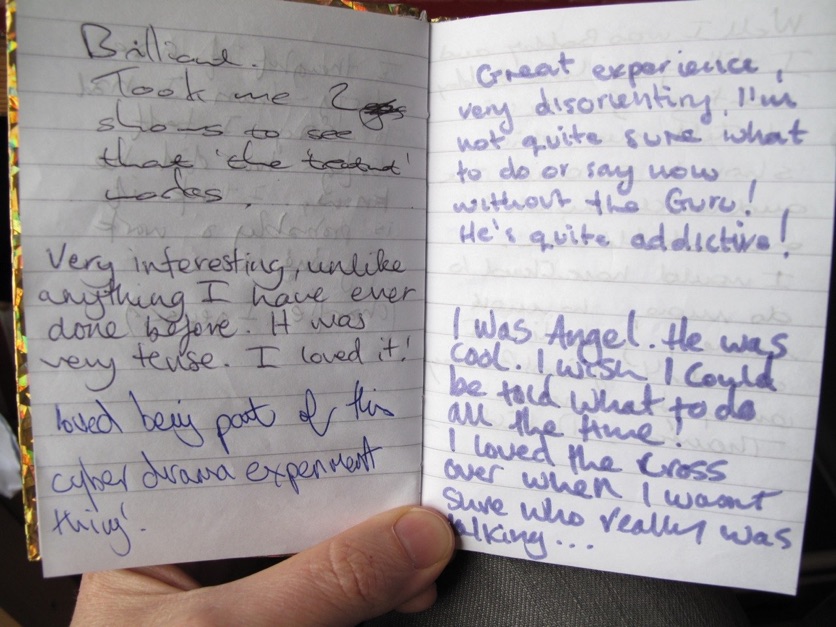 Brilliant.
Took me 2
shows to see
that 'the treatment'
works.
Very interesting, unlike
anything I have ever
done before. It was
very tense. I loved it!
loved being part of this
cyber drama experiment
thing'.
Great experience,
very disorienting. I'm
not quite sure what
to do or say now
without the Guru!
He's quite addictive!
I was Angel. He was
cool. I wish I could
be told what to do
all the time!
I loved the cross
over when I wasnt
sure who really was
talking...